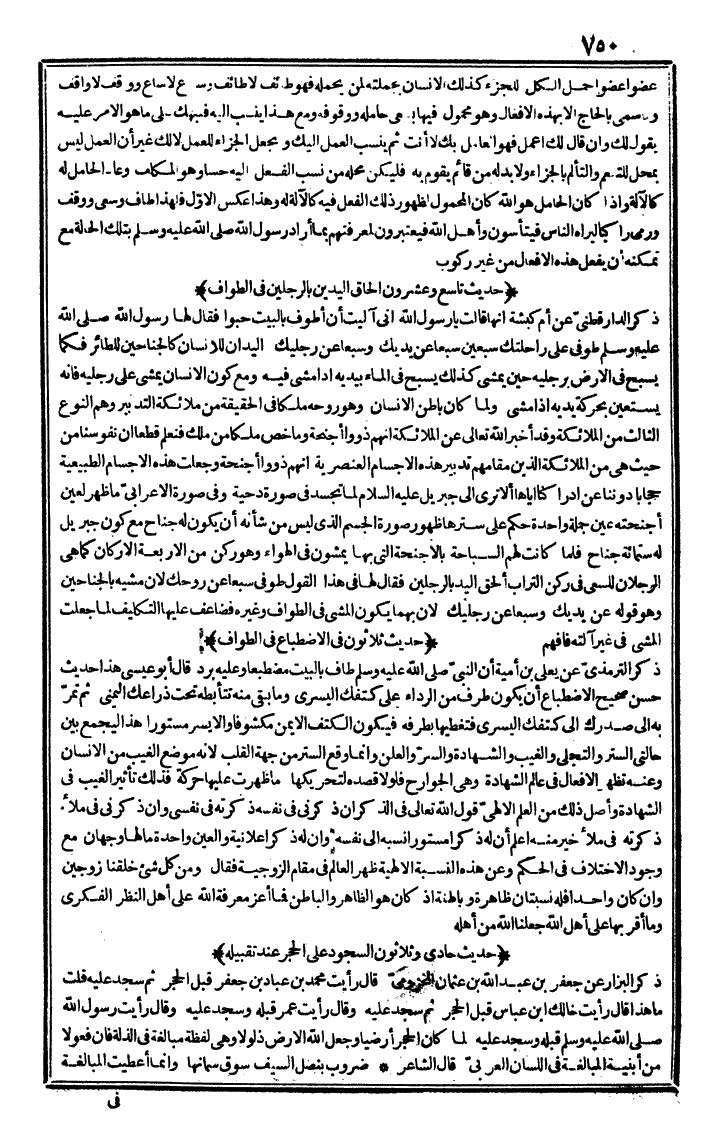 ٧٥٠
عضوا عضوا حمل الكل للجزء كذلك الانسان بجملته لمن يحمله فهو طائف لا طائف وساع لا ساع وواقف لا واقف
ويسمى بالحاج الا بهذه الافعال وهو محمول فيها حامله ورقوفه ومع هذا ينسب اليه فنبهك على ماهو الامر عليه
يقول لك وان قال لك اعمل فهو العامل بك لا أنت ثم ينسب العمل اليك ويجعل الجزاء للعمل لا لك غير أن العمل ليس
بمحل للتنعم والتألم بالجزاء ولا بد له من قائم يقوم به فليكن محله من نسب الفعل اليه حسا وهو المكلف وعاد الحامل له
كالآلة واذا كان الحامل هو الله كان المحمول لظهور ذلك الفعل فيه كالآلة له وهذا عكس الاول فلهذا طاف وسعى ووقف
ورمى راكبا ليراه الناس فيتأسون وأهل الله فيعتبرون لمعرفتهم بما أراد رسول الله صلى الله عليه وسلم بتلك الحالة مع
تمكنه أن يفعل هذه الافعال من غير ركوب
﴿حديث تاسع وعشرون الحاق اليدين بالرجلين فى الطواف﴾
ذكر الدارقطنىّ عن أم كبشة انها قالت يا رسول الله انى آليت أن أطوف بالبيت حبوا فقال لها رسول الله صلى الله
عليه وسلم طوفى على راحلتك سبعين سبعا عن يديك وسبعا عن رجليك اليدان للانسان كالجناحين للطائر فكما
يسبح فى الارض برجليه حين يمشى كذلك يسبح فى الماء بيديه اذا مشى فيه ومع كون الانسان يمشى على رجليه فانه
يستعين بحركة يديه اذا مشى ولما كان باطن الانسان وهو روحه ملكا فى الحقيقة من ملائكة التدبير وهم النوع
الثالث من الملائكة وقد أخبر الله تعالى عن الملائكة انهم ذووا أجنحة وما خص ملكا من ملك فنعلم قطعا ان نفوسنا من
حيث هى من الملائكة الذين مقامهم تدبير هذه الاجسام العنصرية انهم ذووا أجنحة وجعلت هذه الاجسام الطبيعية
حجابا دوننا عن ادراكنا اياها ألا ترى الى جبريل عليه السلام لما تجسد فى صورة دحية وفى صورة الاعرابىّ ما ظهر لعين
أجنحته عين جملة واحدة حكم على سترها ظهور صورة الجسم الذى ليس من شأنه أن يكون له جناح مع كون جبريل
له ستمائة جناح فلما كانت لهم السباحة بالاجنحة التى بها يمشون فى الهواء وهو ركن من الاربعة الاركان كما هى
الرجلان للسعى فى ركن التراب ألحق اليد بالرجلين فقال لها فى هذا القول طوفى سبعا عن روحك لان مشيه بالجناحين
وهو قوله عن يديك وسبعا عن رجليك لان بهما يكون المشى فى الطواف وغيره فضاعف عليها التكليف لما جعلت
المشى فى غير آلته فافهم ﴿حديث ثلاثون فى الاضطباع فى الطواف﴾
ذكر الترمذىّ عن يعلى بن أمية أن النبىّ صلى الله عليه وسلم طاف بالبيت مضطبعا وعليه برد قال أبو عيسى هذا حديث
حسن صحيح الاضطباع أن يكون طرف من الرداء على كتفك اليسرى وما بقى منه تتأبطه تحت ذراعك اليمنى ثم تمرّ
به الى صدرك الى كتفك اليسرى فتغطيها بطرفه فيكون الكتف الايمن مكشوفا والايسر مستورا هذا ليجمع بين
حالتى الستر والتجلى والغيب والشهادة والسرّ والعلن وانما وقع الستر من جهة القلب لانه موضع الغيب من الانسان
وعنه تظهر الافعال فى عالم الشهادة وهى الجوارح فلولا قصده لتحريكها ما ظهرت عليها حركة فذلك تأثير الغيب فى
الشهادة وأصل ذلك من العلم الالهىّ قول الله تعالى فى الذكر ان ذكرنى فى نفسه ذكرته فى نفسى وان ذكرنى فى ملأ
ذكرته فى ملأ خير منه اعلم أن له ذكرا مستورا نسبه الى نفسه وان له ذكرا علانية والعين واحدة مالها وجهان مع
وجود الاختلاف فى الحكم وعن هذه النسبة الالهية ظهر العالم فى مقام الزوجية فقال ومن كل شئ خلقنا زوجين
وان كان واحدا فله نسبتان ظاهرة وباطنة اذ كان هو الظاهر والباطن فما أعز معرفة الله على أهل النظر الفكرى
وما أقربها على أهل الله جعلنا الله من أهله
﴿حديث حادى وثلاثون السجود على الحجر عند تقبيله﴾
ذكر البزار عن جعفر بن عبد الله بن عثمان المخزومىّ قال رأيت محمد بن عباد بن جعفر قبل الحجر ثم سجد عليه قلت
ما هذا قال رأيت خالك ابن عباس قبل الحجر ثم سجد عليه وقال رأيت عمر قبله وسجد عليه وقال رأيت رسول الله
صلى الله عليه وسلم قبله وسجد عليه لما كان الحجر أرضيا وجعل الله الارض ذلولا وهى لفظة مبالغة فى الذلة فان فعولا
من أبنية المبالغة فى اللسان العربىّ قال الشاعر * ضروب بنصل السيف سوق سمانها وانما أعطيت المبالغة
فى